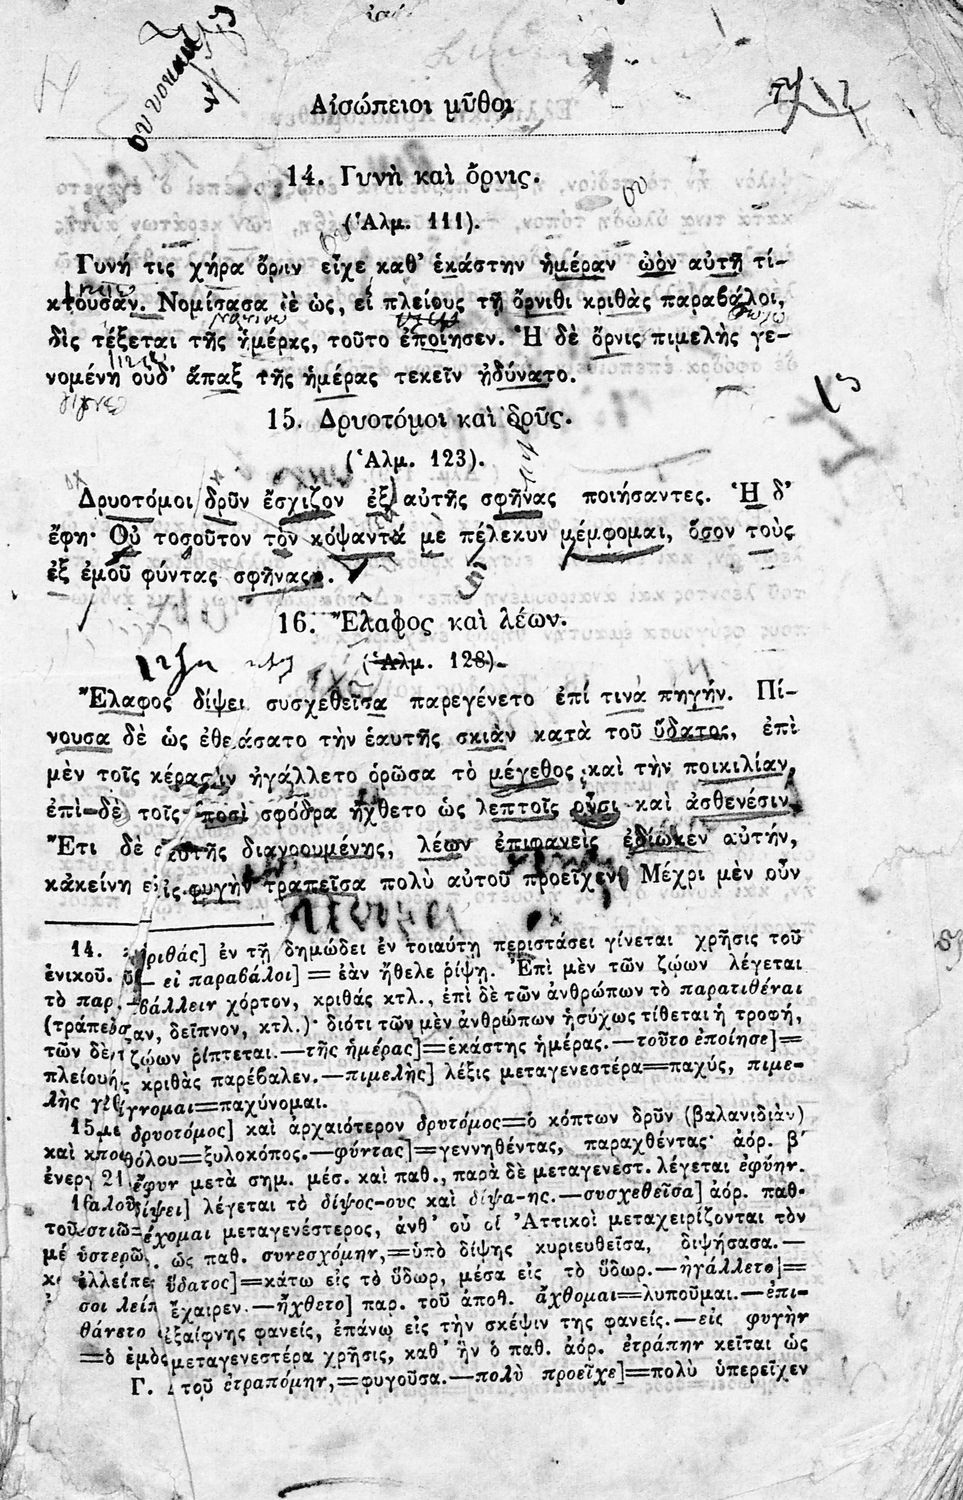 Αἰσώπειοι μῦθοι
14. Γυνὴ καὶ ὄρνις.
(Ἁλμ. 111).
Γυνή τις χήρα ὄρνιν εἶχε καθ' ἑκάστην ἡμέραν ᾠὸν αὐτῇ τί-
κτουσαν. Νομίσασα δὲ ὡς, εἰ πλείους τῇ ὄρνιθι κριθὰς παραβάλοι,
δὶς τέξεται τῆς ἡμέρας, τοῦτο ἐποίησεν. Ἡ δὲ ὄρνις πιμελὴς γε-
νομένη οὐδ' ἅπαξ τῆς ἡμέρας τεκεῖν ἠδύνατο.
15. Δρυοτόμοι καὶ δρῦς.
(Ἁλμ. 123).
Δρυοτόμοι δρῦν ἔσχιζον ἐξ αὐτῆς σφῆνας ποιήσαντες. Ἡ δ'
ἔφη· Οὐ τοσοῦτον τὸν κόψαντά με πέλεκυν μέμφομαι, ὅσον τοὺς
ἐξ ἐμοῦ φύντας σφῆνας».
16. Ἔλαφος καὶ λέων.
(Ἁλμ. 128).
Ἔλαφος δίψει συσχεθεῖσα παρεγένετο ἐπί τινα πηγήν. Πί-
νουσα δὲ ὡς ἐθεάσατο τὴν ἑαυτῆς σκιὰν κατὰ τοῦ ὕδατος, ἐπὶ
μὲν τοῖς κέρασιν ἠγάλλετο ὁρῶσα τὸ μέγεθος καὶ τὴν ποικιλίαν,
ἐπὶ δὲ τοῖς ποσὶ σφόδρα ἤχθετο ὡς λεπτοῖς οὖσι καὶ ἀσθενέσιν.
Ἔτι δὲ αὐτῆς διανοουμένης, λέων ἐπιφανεὶς ἐδίωκεν αὐτήν,
κἀκείνη εἰς φυγὴν τραπεῖσα πολὺ αὐτοῦ προεῖχεν. Μέχρι μὲν οὖν
14. κριθάς] ἐν τῇ δημώδει ἐν τοιαύτῃ περιστάσει γίνεται χρῆσις τοῦ
ἑνικοῦ. — εἰ παραβάλοι] = ἐὰν ἤθελε ῥίψῃ. Ἐπὶ μὲν τῶν ζῴων λέγεται
τὸ παρ. βάλλειν χόρτον, κριθάς κτλ., ἐπὶ δὲ τῶν ἀνθρώπων τὸ παρατιθέναι
(τράπεζαν, δεῖπνον, κτλ.)· διότι τῶν μὲν ἀνθρώπων ἡσύχως τίθεται ἡ τροφή,
τῶν δὲ ζῴων ῥίπτεται.—τῆς ἡμέρας]=ἑκάστης ἡμέρας.—τοῦτο ἐποίησε]=
πλείους κριθὰς παρέβαλεν.—πιμελὴς] λέξις μεταγενεστέρα=παχύς, πιμε-
λὴς γίγνομαι=παχύνομαι.
15 δρυοτόμος] καὶ ἀρχαιότερον δρυτόμος=ὁ κόπτων δρῦν (βαλανιδιὰν)
καὶ ξυλοκόπος.—φύντας]=γεννηθέντας, παραχθέντας· ἀόρ. β΄
ἐνεργ ἔφυν μετὰ σημ. μέσ. καὶ παθ., παρὰ δὲ μεταγενεστ. λέγεται ἐφύην.
δίψει] λέγεται τὸ δίψος-ους καὶ δίψα-ης.—συσχεθεῖσα] ἀόρ. παθ.
μεταγενέστερος, ἀνθ' οὗ οἱ Ἀττικοὶ μεταχειρίζονται τὸν
ὡς παθ. συνεσχόμην,=ὑπὸ δίψης κυριευθεῖσα, διψήσασα.—
ὕδατος]=κάτω εἰς τὸ ὕδωρ, μέσα εἰς τὸ ὕδωρ.—ἠγάλλετο]=
ἔχαιρεν.—ἤχθετο] παρ. τοῦ ἀποθ. ἄχθομαι=λυποῦμαι.—ἐπι-
ἐξαίφνης φανείς, ἐπάνω εἰς τὴν σκέψιν της φανείς.—εἰς φυγὴν
μεταγενεστέρα χρῆσις, καθ' ἣν ὁ παθ. ἀόρ. ἐτράπην κεῖται ὡς
Γ. τοῦ ἐτραπόμην,=φυγοῦσα.—πολὺ προεῖχε]=πολὺ ὑπερεῖχεν